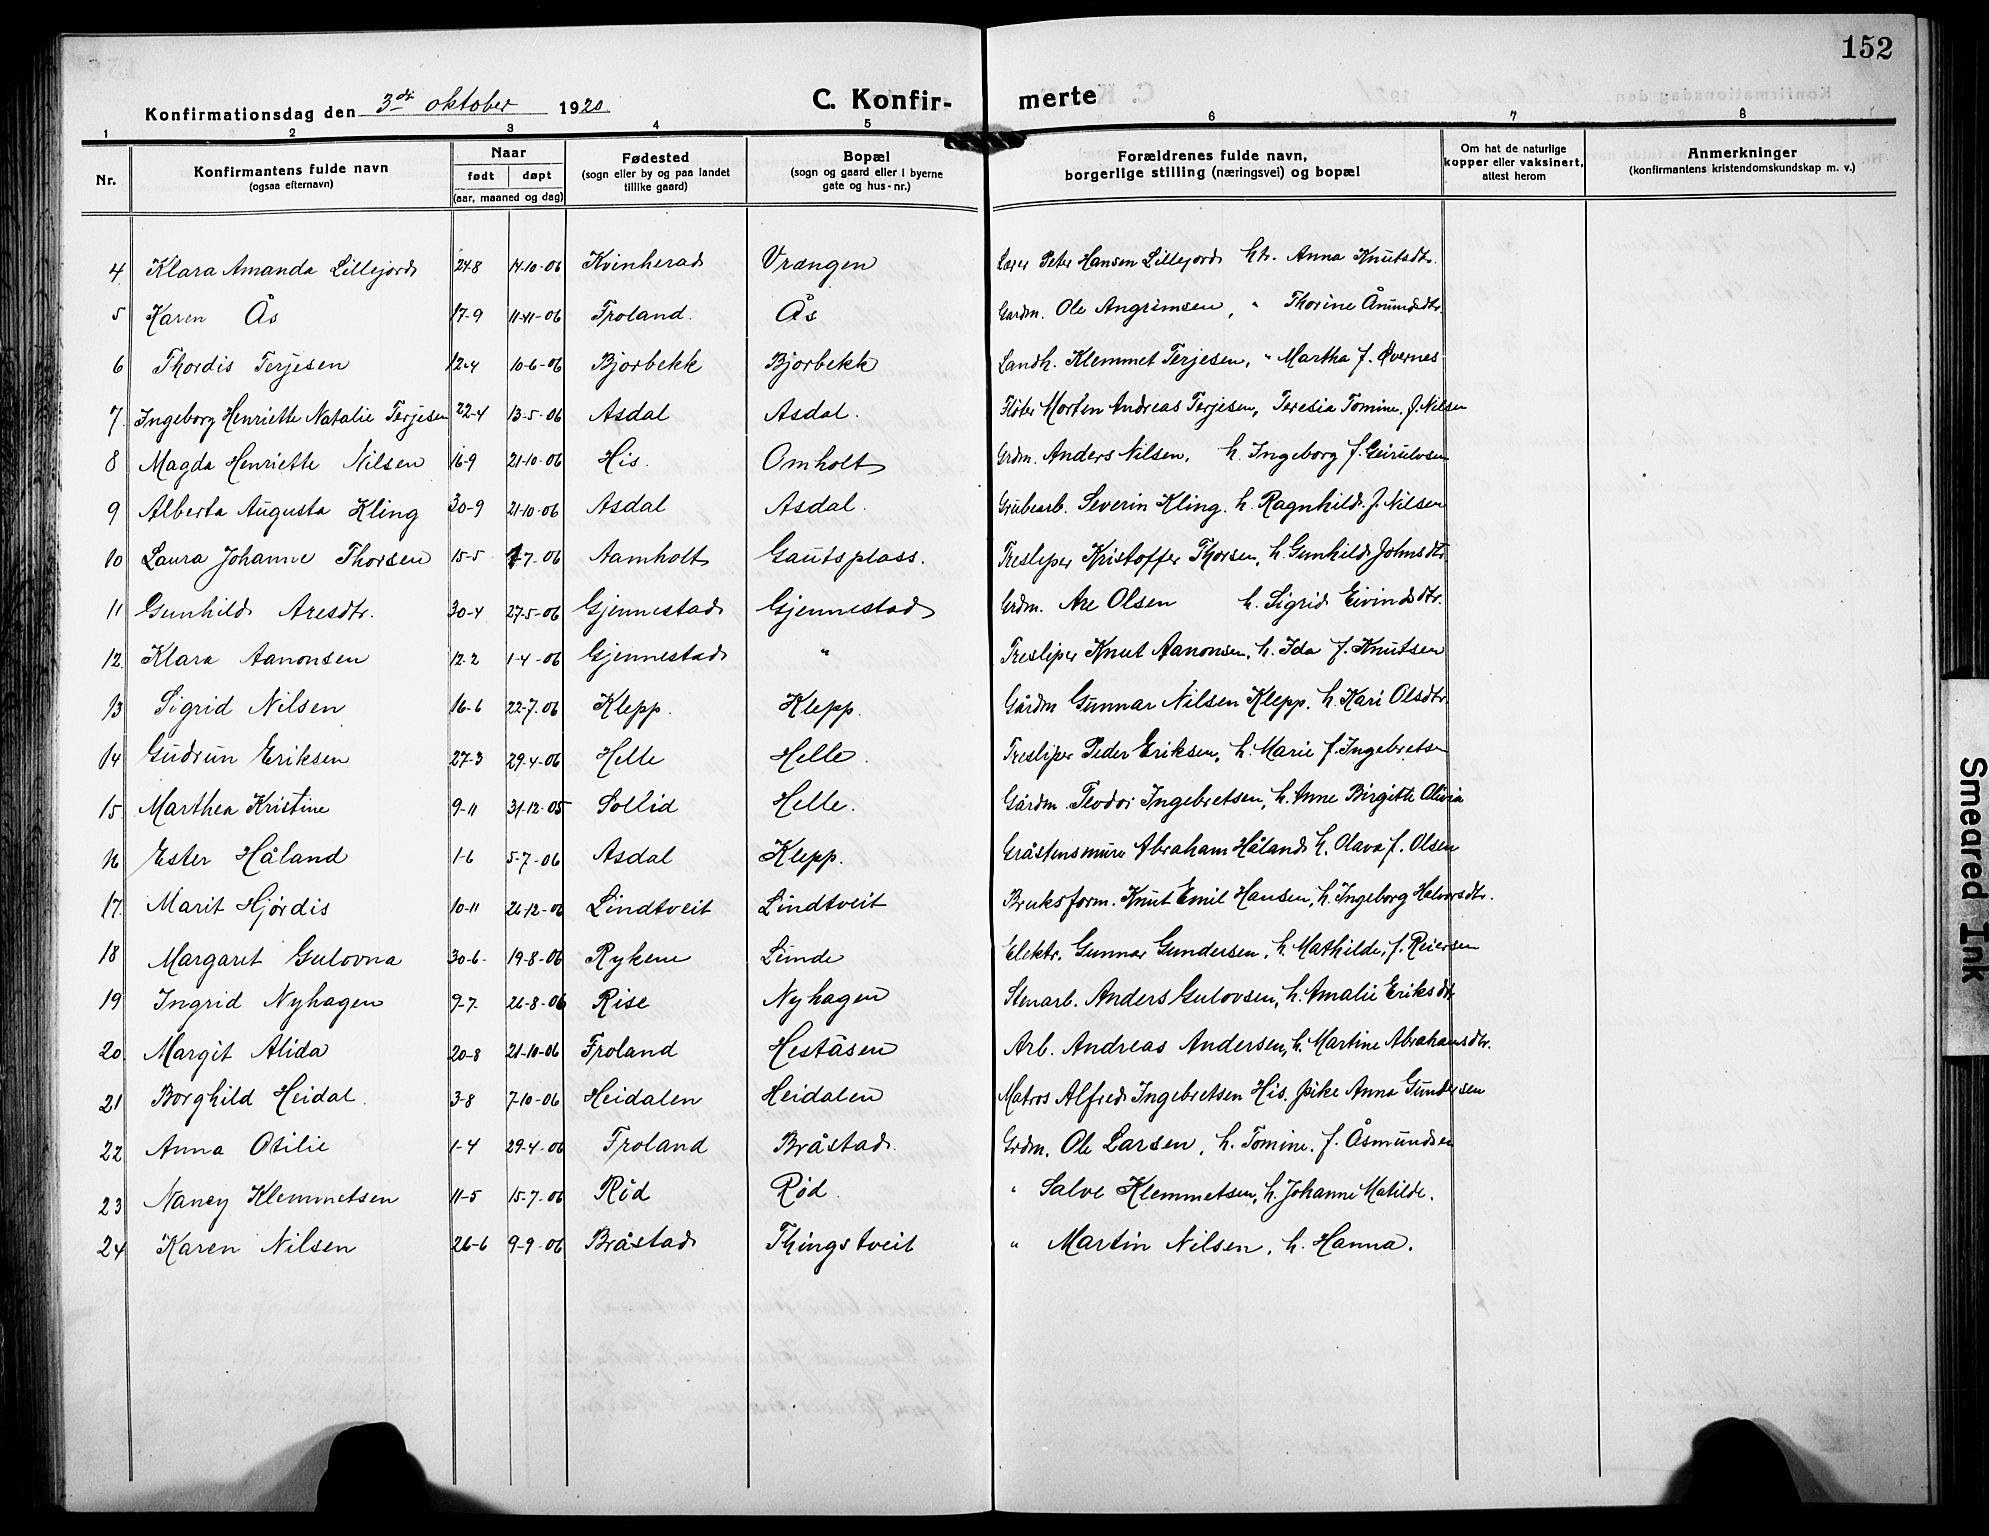 152
Konfirmationsdag den 3die oktober 1920
C. Konfir- merte
1 2 3 4 5 6 7 8
Nr.
Konfirmantens fulde navn
(ogsaa efternavn)
Naar
født døpt
(aar, maaned og dag)
Fødested
(sogn eller by og paa landet
tillike gaard)
Bopæl
(sogn og gaard eller i byerne
gate og hus-nr.)
Forældrenes fulde navn,
borgerlige stilling (næringsvei) og bopæl
Om hat de naturlige
kopper eller vaksinert,
attest herom
Anmerkninger
(konfirmantens kristendomskundskap m. v.)
4 Klara Amanda Lillejord 24-8 14-10-06 Kvinherad Vrængen Lærer Peter Hansen Lillejord htr. Anna Knutsdtr.
5 Karen Ås 17-9 11-11-06 Froland. Ås Gardm. Ole Angrimsen, " Thorine Ånundsdtr.
6 Thordis Terjesen 12-4 10-6-06 Bjorbekk Bjorbekk Landh. Klemmet Terjesen, " Martha f. Øvernes
7. Ingeborg Henriette Natalie Terjesen 22-4 13-5-06 Asdal Asdal. Fløter Morten Andreas Terjesen, Teresia Tomine, f. Nilsen
8 Magda Henriette Nilsen 16-9 21-10-06 His. Omholt Grdm. Anders Nilsen, h. Ingeborg f. Geirulvsen
9 Alberta Augusta Kling 30-9 21-10-06 Asdal Asdal. Grubearb. Severin Kling. h. Ragnhild. f. Nilsen
10 Laura Johanne Thorsen 15-5 1-7-06 Aamholt Gautsplass. Tresliper Kristoffer Thorsen, h. Gunhild Johnsdtr.
11 Gunhild Aresdtr. 30-4 27-5-06 Gjennestad Gjennestad Grdm. Are Olsen h. Sigrid Eivindsdtr.
12. Klara Aanonsen 12-2 1-4-06 Gjennestad " Tresliper Knut Aanonsen, h. Ida f. Knutsen
13 Sigrid Nilsen 16-6 22-7-06 Klepp. Klepp. Gårdm Gunnar Nilsen Klepp. h. Kari Olsdtr.
14 Gudrun Eriksen 27-3 29-4-06 Helle Helle. Tresliper Peder Eriksen, h. Marie f. Ingebretsen
15 Marthea Kristine 9-11 31-12-05 Sollid Helle. Gårdm. Teodor Ingebretsen, h. Anne Birgitte Olivia
16 Ester Håland 1-6 5-7-06 Asdal Klepp. Gråstensmure Abraham Håland h. Olava f. Olsen
17. Marit Hjørdis 10-11 26-12-06 Lindtveit Lindtveit Bruksform. Knut Emil Hansen, h. Ingeborg Halvorsdtr.
18 Margaret Gulovna 30-6- 19-8-06 Rykene Lunde Elektr. Gunnar Gundersen, h. Mathilde, f. Reiersen
19 Ingrid Nyhagen 9-7. 26-8-06 Rise Nyhagen Stenarb. Anders Gulovsen, h. Amalie Eriksdtr
20. Margit Alida 20-8 21-10-06 Froland Heståsen Arb. Andreas Andersen, h. Martine Abrahamsdtr.
21 Borghild Heidal. 3-8 7-10-06 Heidalen Heidalen Matros Alfred Ingebretsen His. pike Anna Gundersen
22 Anna Otilie 1-4 29-4-06 Froland Bråstad. Grdm. Ole Larsen, h. Tomine. f. Åsmundsen
23 Nancy Klemmetsen 11-5 15-7-06 Rød Rød. " Salve Klemmetsen, h. Johanne Matilde.
24 Karen Nilsen 26-6 9-9-06 Bråstad Thingstveit " Martin Nilsen, h. Hanna.
Smeared Ink